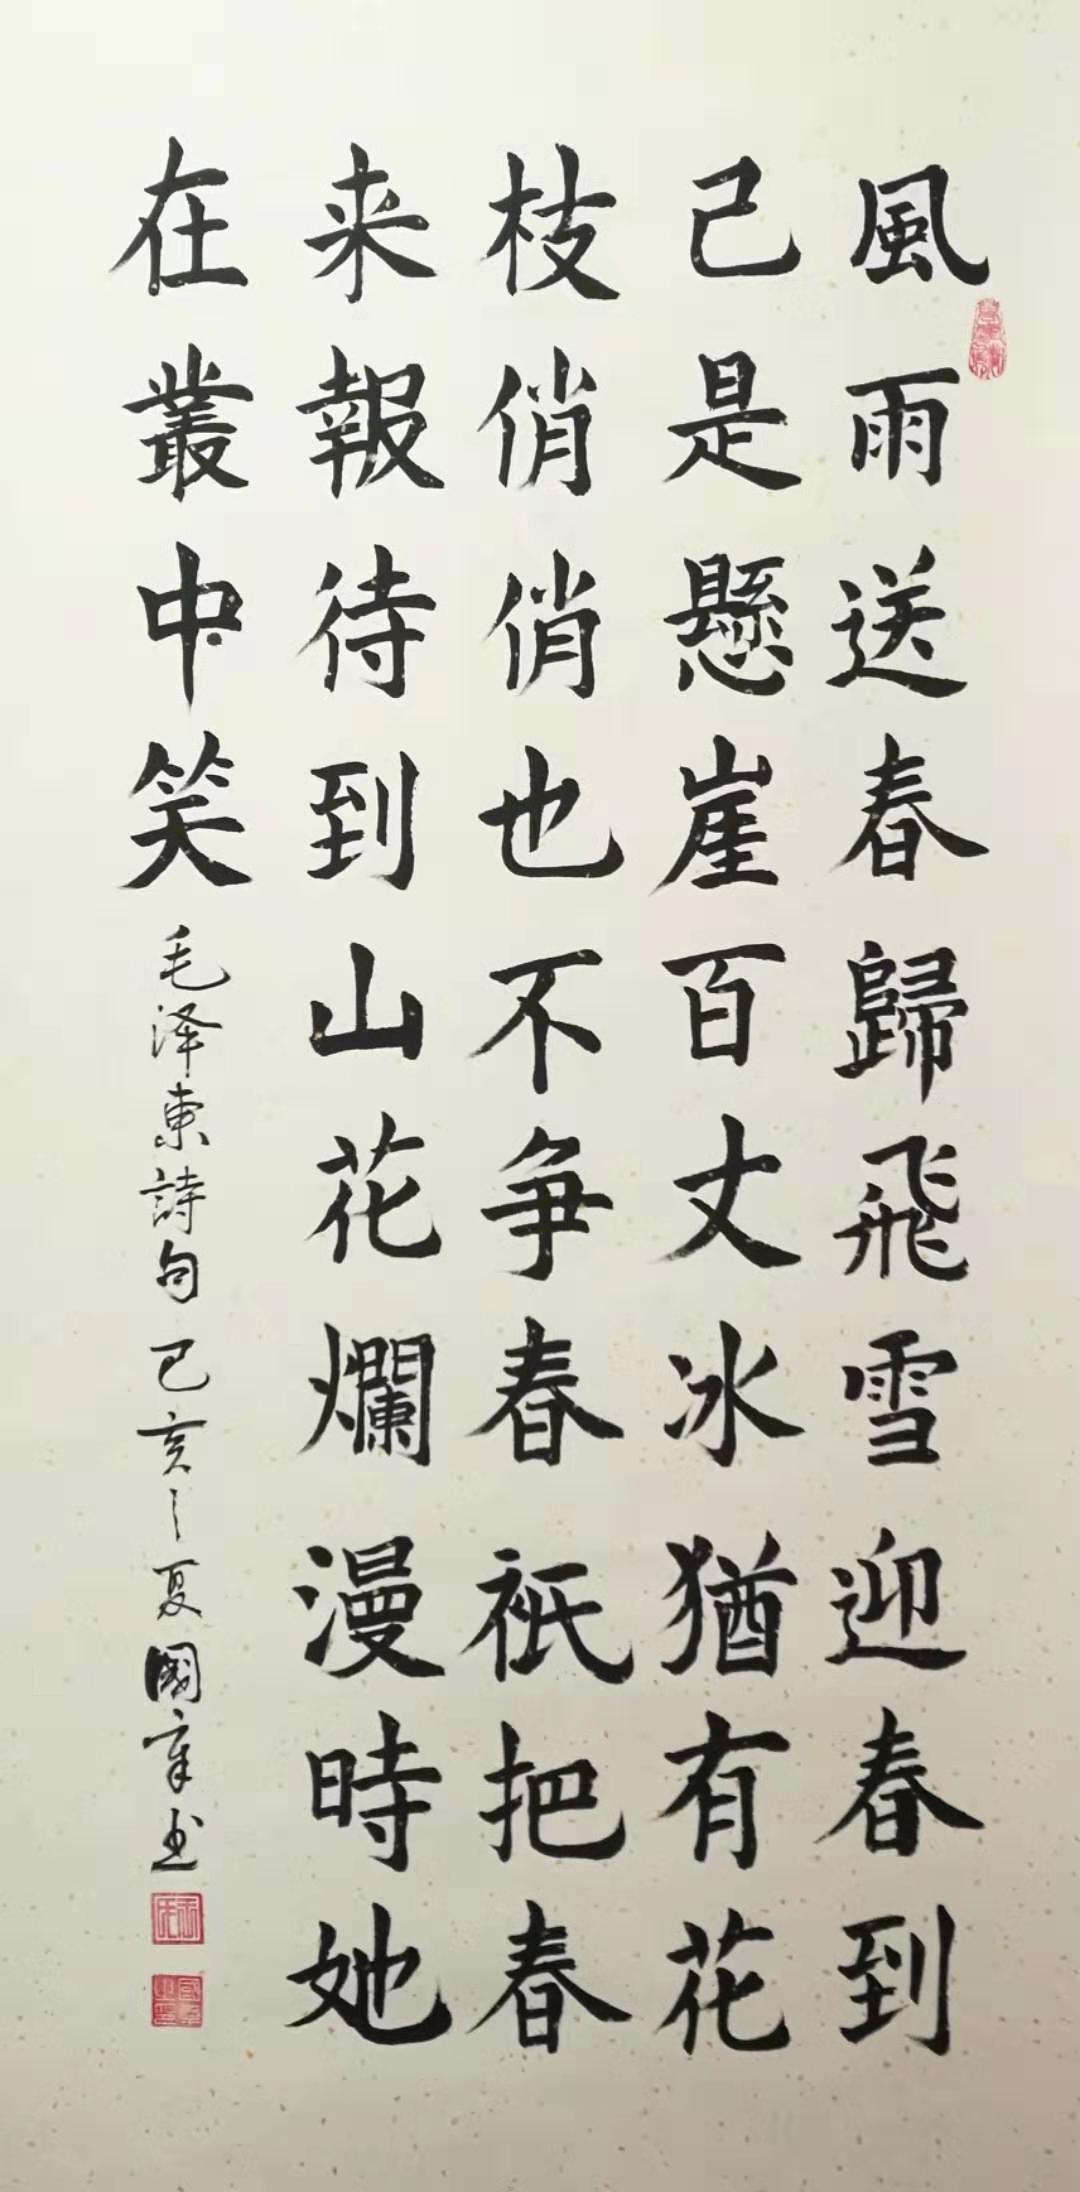 風雨送春歸飛雪迎春到
已是懸崖百丈冰猶有花
枝俏俏也不争春祇把春
来報待到山花爛漫時她
在叢中笑
毛泽東詩句己亥之夏國章书